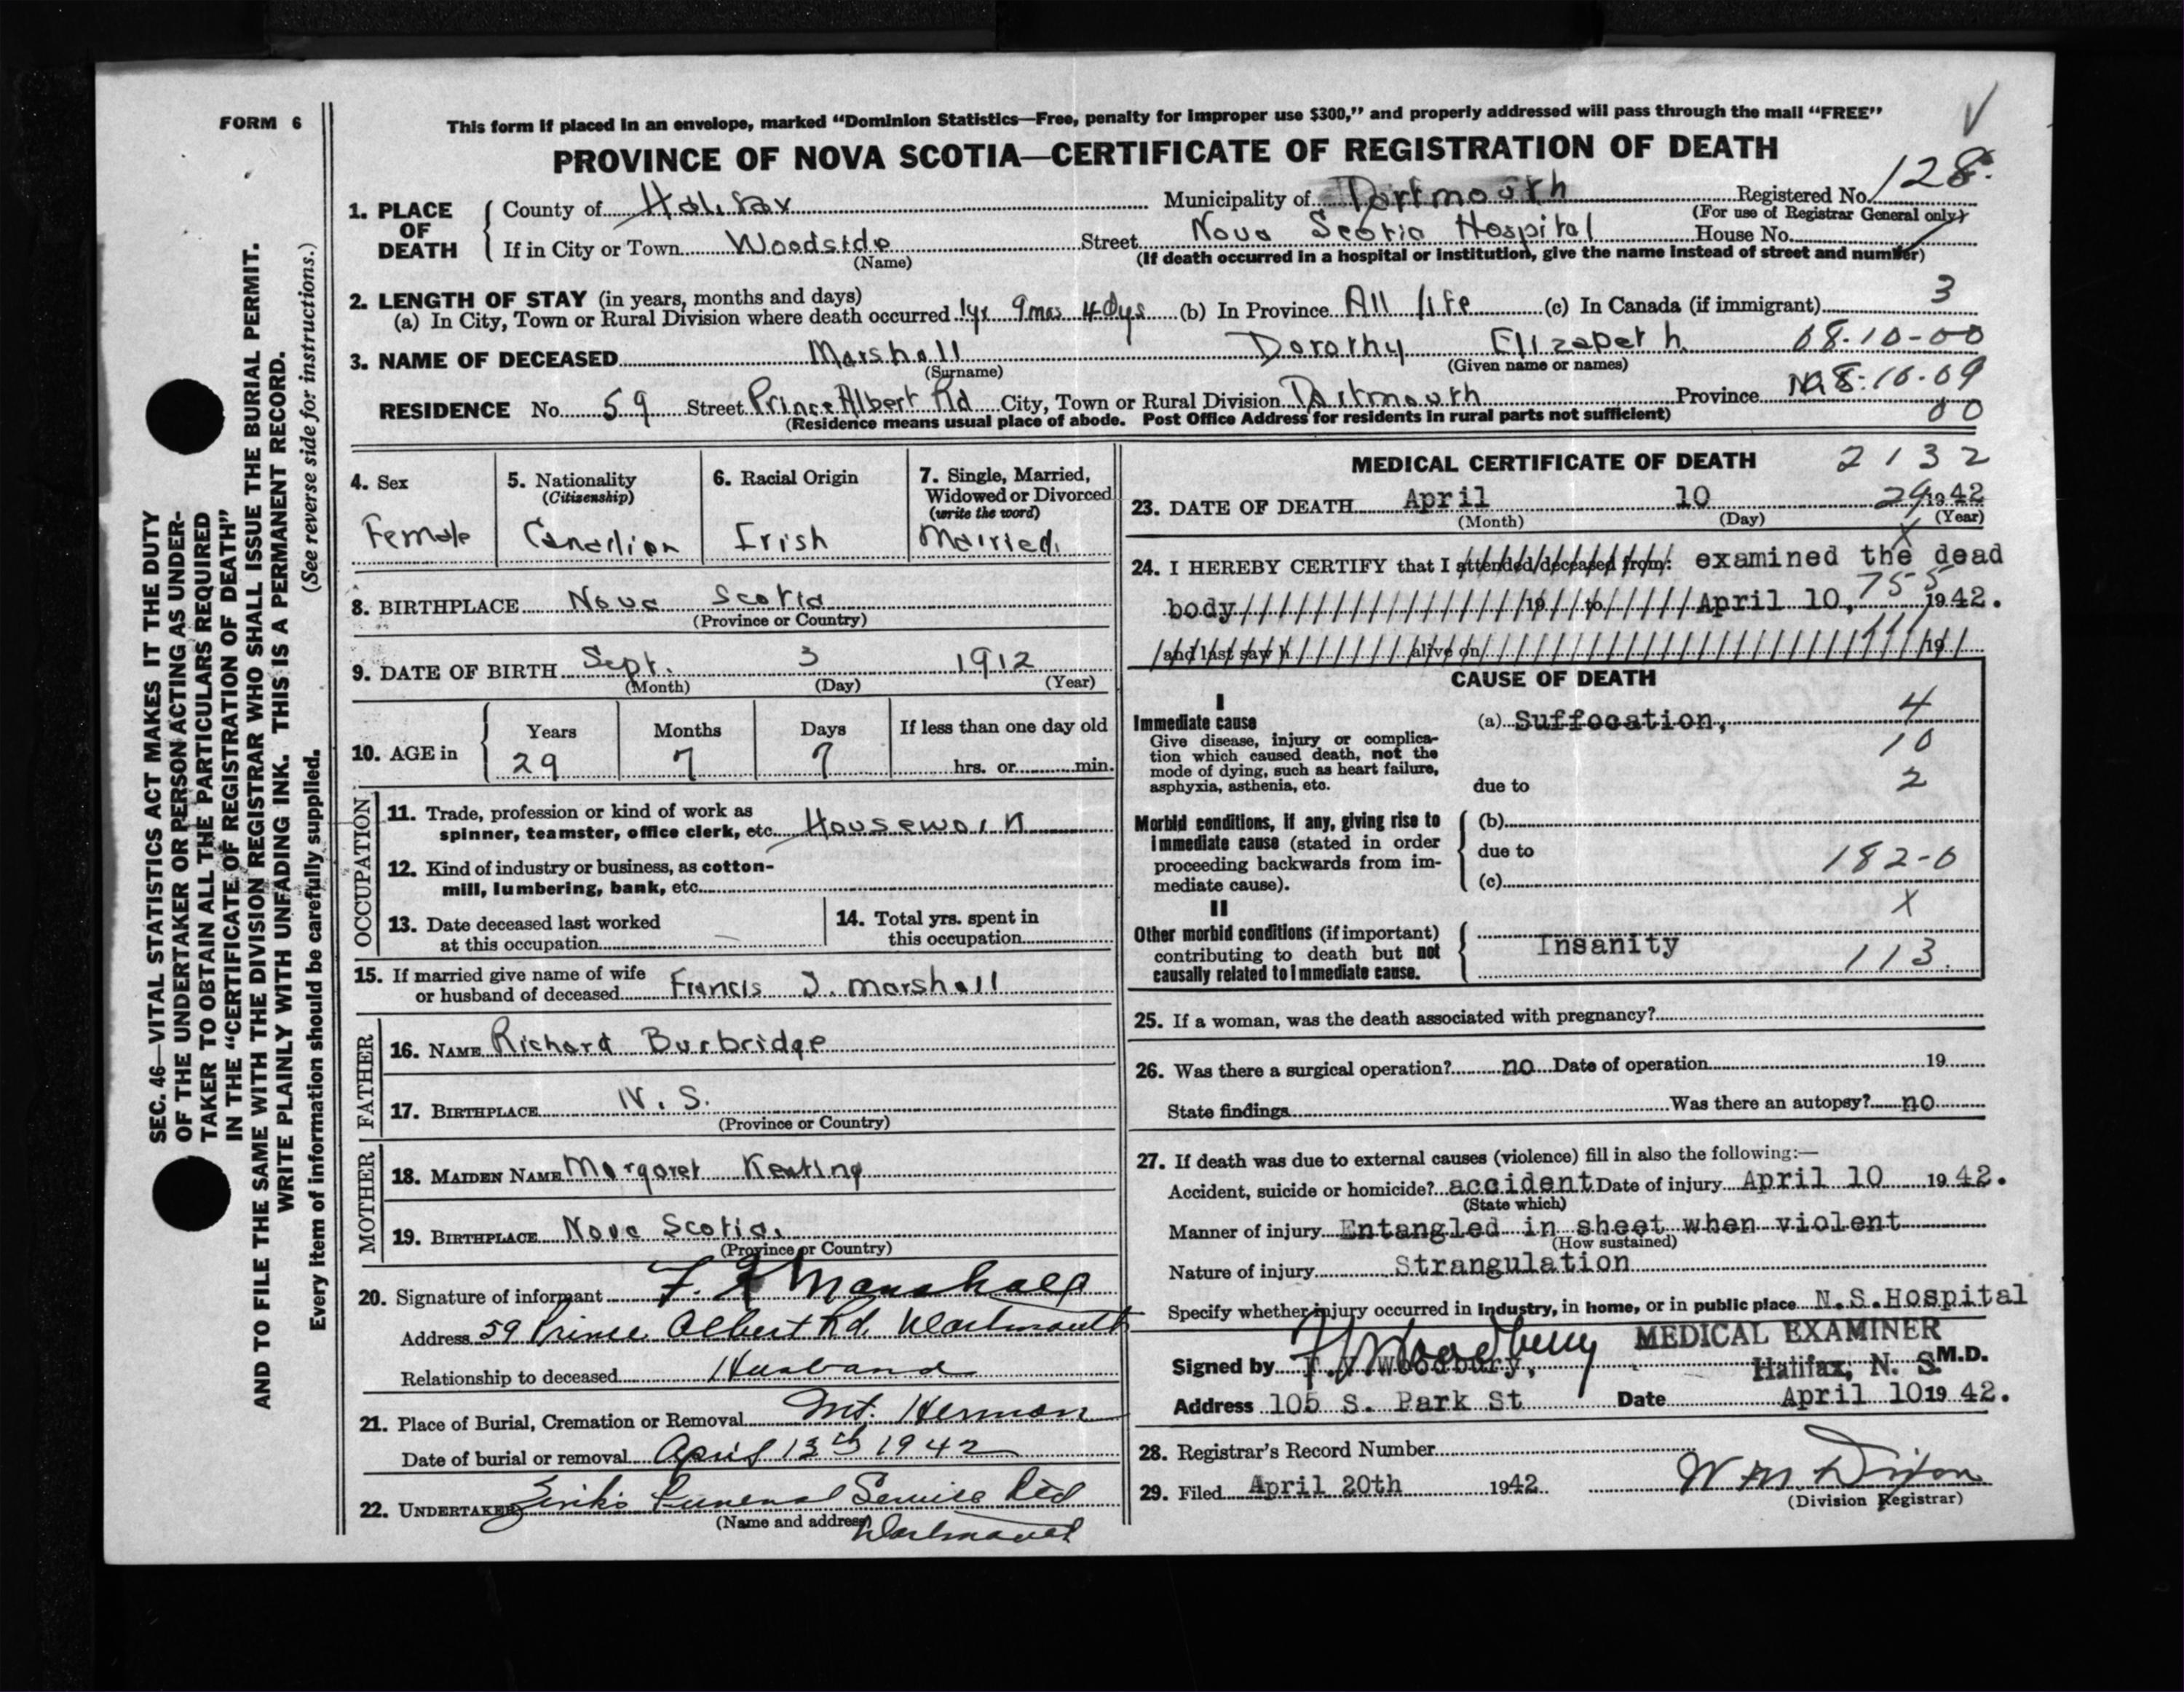 FORM 6
This form if placed in an envelope, marked “Dominion Statistics—Free, penalty for improper use $300,” and properly addressed will pass through the mail “FREE”
PROVINCE OF NOVA SCOTIA—CERTIFICATE OF REGISTRATION OF DEATH
1. PLACE OF DEATH
County of Halifax Municipality of Dartmouth Registered No. 128.
(For use of Registrar General only)
If in City or Town Woodside Street Nova Scotia Hospital House No.
(Name) (If death occurred in a hospital or institution, give the name instead of street and number)
2. LENGTH OF STAY (in years, months and days)
(a) In City, Town or Rural Division where death occurred 1yr 9mos 4 Dys (b) In Province All life (c) In Canada (if immigrant) 3
3. NAME OF DECEASED Marshall Dorothy Elizabeth 08-10-00
(Surname) (Given name or names)
RESIDENCE No. 59 Street Prince Albert Rd City, Town or Rural Division Dartmouth Province N.S. 8-10-09
(Residence means usual place of abode. Post Office Address for residents in rural parts not sufficient) 00
4. Sex Female
5. Nationality (Citizenship) Canadian
6. Racial Origin Irish
7. Single, Married, Widowed or Divorced (write the word) Married.
8. BIRTHPLACE Nova Scotia
(Province or Country)
9. DATE OF BIRTH Sept. 3 1912
(Month) (Day) (Year)
10. AGE in Years Months Days If less than one day old
29 7 7 hrs. or min.
OCCUPATION
11. Trade, profession or kind of work as spinner, teamster, office clerk, etc. Housework
12. Kind of industry or business, as cotton-mill, lumbering, bank, etc.
13. Date deceased last worked at this occupation —
14. Total yrs. spent in this occupation
15. If married give name of wife or husband of deceased Francis J. Marshall
FATHER
16. NAME Richard Burbridge
17. BIRTHPLACE N.S.
(Province or Country)
MOTHER
18. MAIDEN NAME Margaret Keating
19. BIRTHPLACE Nova Scotia.
(Province or Country)
20. Signature of informant F. J Marshall
Address 59 Prince Albert Rd. Dartmouth
Relationship to deceased Husband
21. Place of Burial, Cremation or Removal Mt. Hermon
Date of burial or removal April 13th 1942
22. UNDERTAKER Funeral Service Ltd
(Name and address) Dartmouth
MEDICAL CERTIFICATE OF DEATH 2132
23. DATE OF DEATH April 10 29 1942
(Month) (Day) (Year)
X
24. I HEREBY CERTIFY that I attended deceased from: examined the dead
body 19 to April 10, 755 1942.
and last saw h alive on 19
CAUSE OF DEATH
I
Immediate cause (a) Suffocation, 4
Give disease, injury or complication which caused death, not the mode of dying, such as heart failure, asphyxia, asthenia, etc. 10
due to 2
Morbid conditions, if any, giving rise to immediate cause (stated in order proceeding backwards from immediate cause).
(b)
due to 182-0
(c)
II X
Other morbid conditions (if important) contributing to death but not causally related to immediate cause. Insanity 113.
25. If a woman, was the death associated with pregnancy?
26. Was there a surgical operation? no Date of operation 19
State findings Was there an autopsy? no
27. If death was due to external causes (violence) fill in also the following:—
Accident, suicide or homicide? accident Date of injury April 10 1942.
(State which)
Manner of injury Entangled in sheet when violent
(How sustained)
Nature of injury Strangulation
Specify whether injury occurred in industry, in home, or in public place N.S.Hospital
MEDICAL EXAMINER
Signed by F.V. Woodbury, Halifax, N. S. M.D.
Address 105 S. Park St Date April 10 1942.
28. Registrar's Record Number
29. Filed April 20th 1942 W M Dixon
(Division Registrar)
SEC. 46—VITAL STATISTICS ACT MAKES IT THE DUTY
OF THE UNDERTAKER OR PERSON ACTING AS UNDER-
TAKER TO OBTAIN ALL THE PARTICULARS REQUIRED
IN THE “CERTIFICATE OF REGISTRATION OF DEATH”
AND TO FILE THE SAME WITH THE DIVISION REGISTRAR WHO SHALL ISSUE THE BURIAL PERMIT.
WRITE PLAINLY WITH UNFADING INK. THIS IS A PERMANENT RECORD.
Every item of information should be carefully supplied. (See reverse side for instructions.)